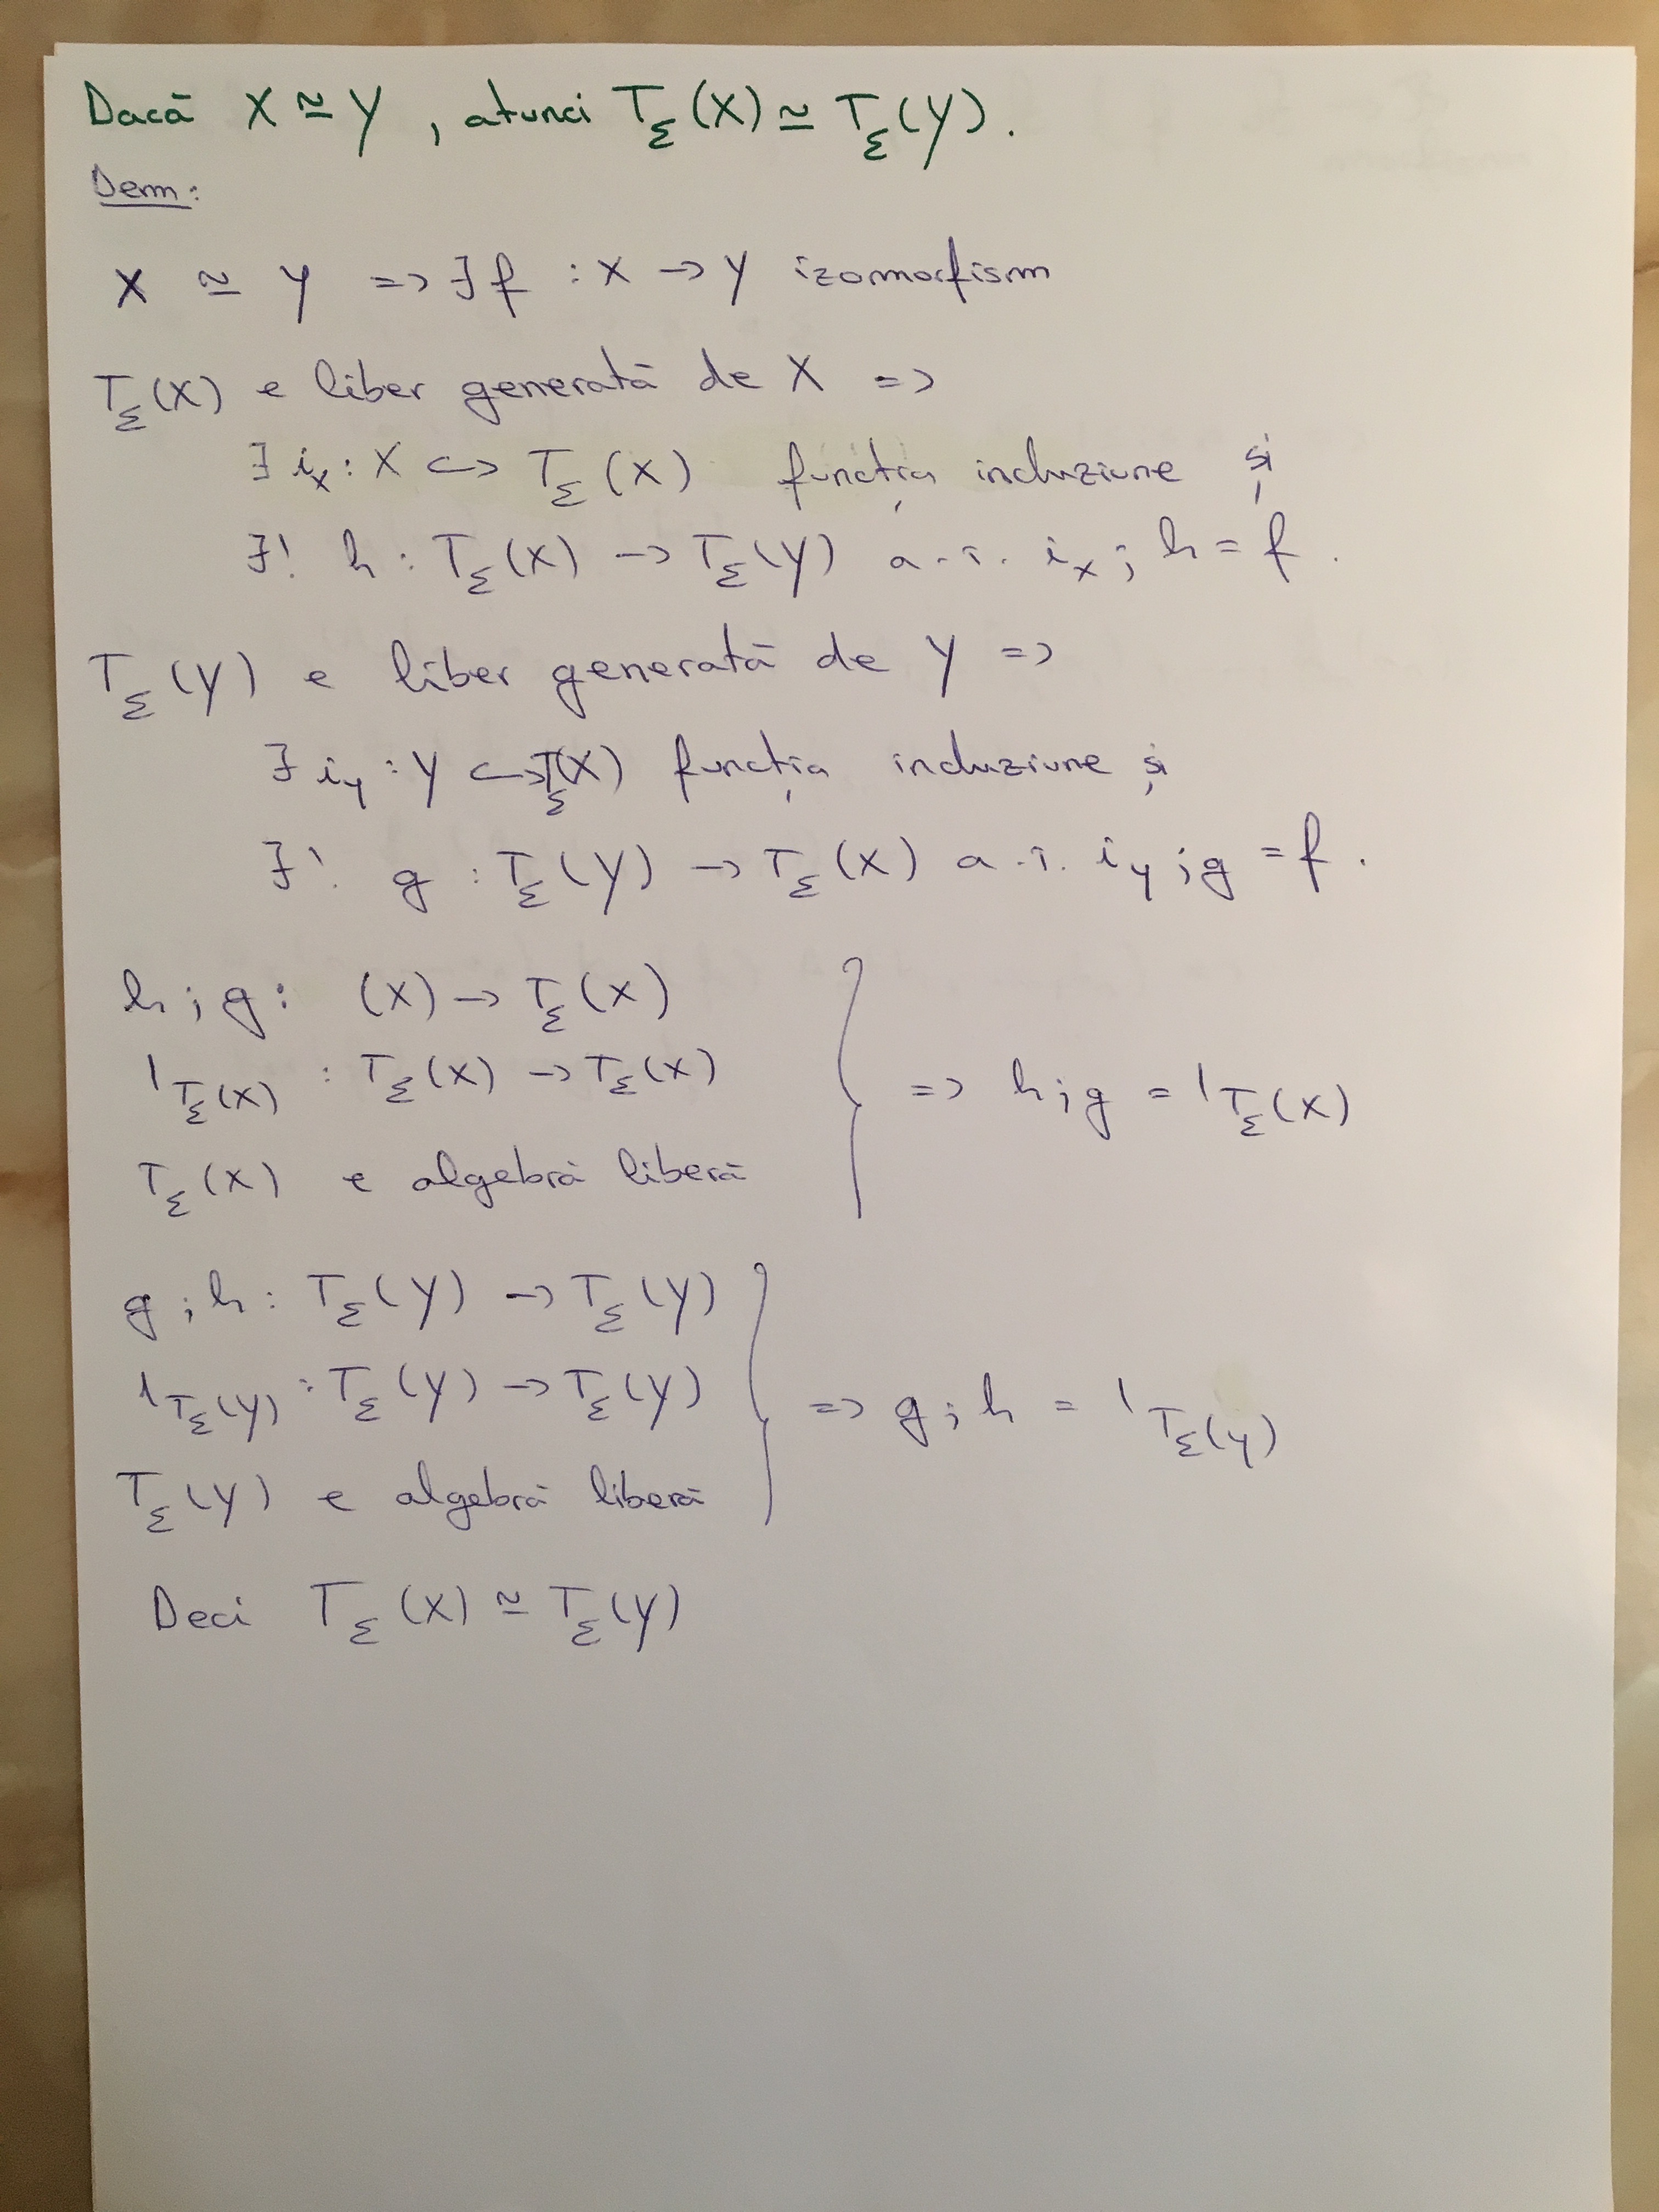 Dacă X ≃ Y, atunci T_Σ(X) ≃ T_Σ(Y).
Dem:
X ≃ Y => ∃ f : X → Y izomorfism
T_Σ(X) e liber generată de X =>
∃ i_X : X ↪ T_Σ(X) funcția incluziune și
∃! h : T_Σ(X) → T_Σ(Y) a.î. i_X ; h = f.
T_Σ(Y) e liber generată de Y =>
∃ i_Y : Y ↪ T_Σ(X) funcția incluziune și
∃! g : T_Σ(Y) → T_Σ(X) a.î. i_Y ; g = f.
h ; g : (X) → T_Σ(X)
1_T_Σ(X) : T_Σ(X) → T_Σ(X) => h ; g = 1_T_Σ(X)
T_Σ(X) e algebră liberă
g ; h : T_Σ(Y) → T_Σ(Y)
1_T_Σ(Y) : T_Σ(Y) → T_Σ(Y) => g ; h = 1_T_Σ(Y)
T_Σ(Y) e algebră liberă
Deci T_Σ(X) ≃ T_Σ(Y)